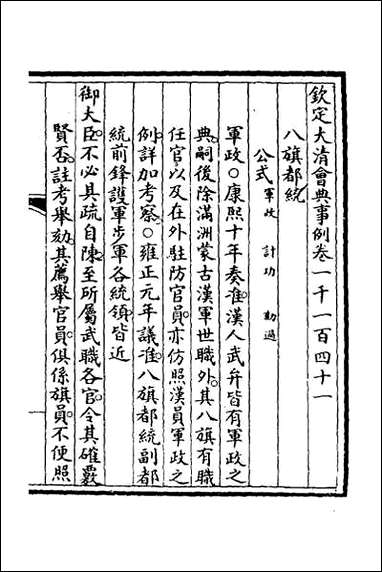 欽定大清會典事例卷一千一百四十一
八旗都統
公式 軍政 計功 勸過
軍政○康熙十年奏准漢人武弁皆有軍政之
典嗣後除滿洲蒙古漢軍世職外其八旗有職
任官以及在外駐防官員亦仿照漢員軍政之
例詳加考察○雍正元年議准八旗都統副都
統前鋒護軍步軍各統領皆近
御大臣不必具疏自陳至所屬武職各官令其確覈
賢否註考舉劾其薦舉官員俱係旗員不便照